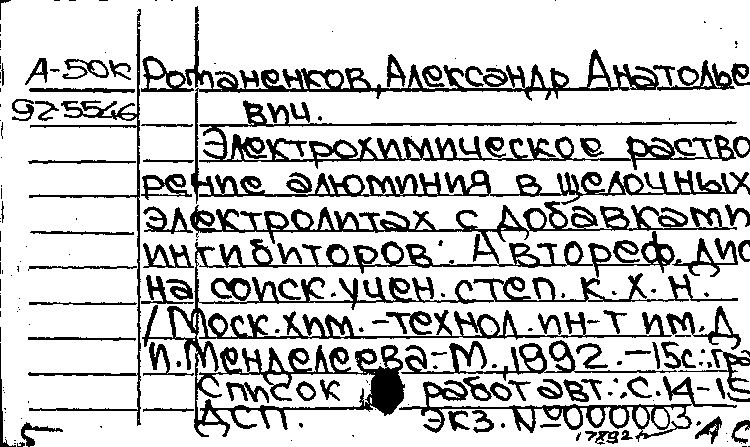 А-50К Романенков, Александр Анатолье
92-5546 вич.
Электрохимическое раство
рение алюминия в щелочных
электролитах с добавками
ингибиторов: Автореф. дис
на соиск. учен. степ. к. х. н.
/ Моск. хим.-технол. ин-т им. Д.
И. Менделеева.-М., 1992.-15с.:гра
Список работ авт.: с. 14-15
ДСП. Экз. №000003.